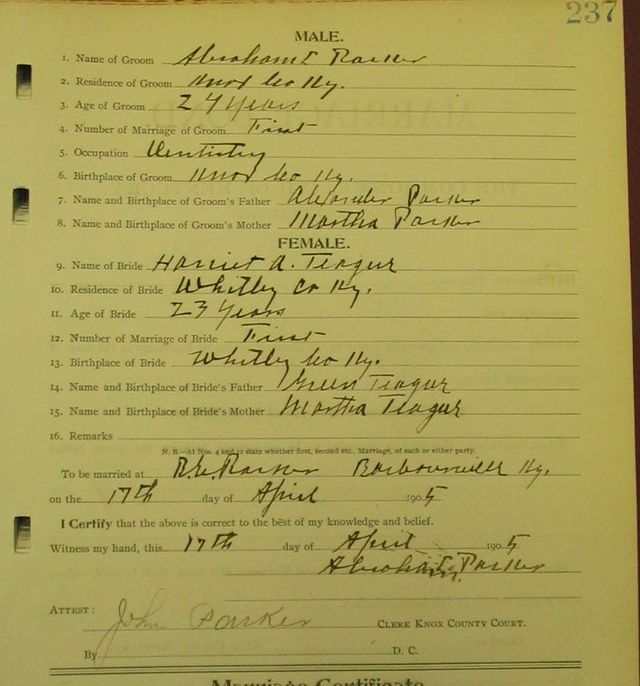 237
MALE.
1. Name of Groom Abraham E Parker
2. Residence of Groom Knox Co Ky.
3. Age of Groom 24 Years
4. Number of Marriage of Groom First
5. Occupation Dentistry
6. Birthplace of Groom Knox Co Ky.
7. Name and Birthplace of Groom's Father Alexander Parker
8. Name and Birthplace of Groom's Mother Martha Parker
FEMALE.
9. Name of Bride Harriet A. Teague
10. Residence of Bride Whitley Co Ky.
11. Age of Bride 23 Years
12. Number of Marriage of Bride First
13. Birthplace of Bride Whitley Co Ky.
14. Name and Birthplace of Bride's Father Green Teague
15. Name and Birthplace of Bride's Mother Martha Teague
16. Remarks
N. B.—At Nos. 4 and 12 state whether first, second etc., Marriage, of each or either party.
To be married at Parker Barbourville Ky.
on the 17th day of April 1905
I Certify that the above is correct to the best of my knowledge and belief.
Witness my hand, this 17th day of April 1905
Parker
ATTEST: John Parker CLERK KNOX COUNTY COURT.
By D. C.
Marriage Certificate